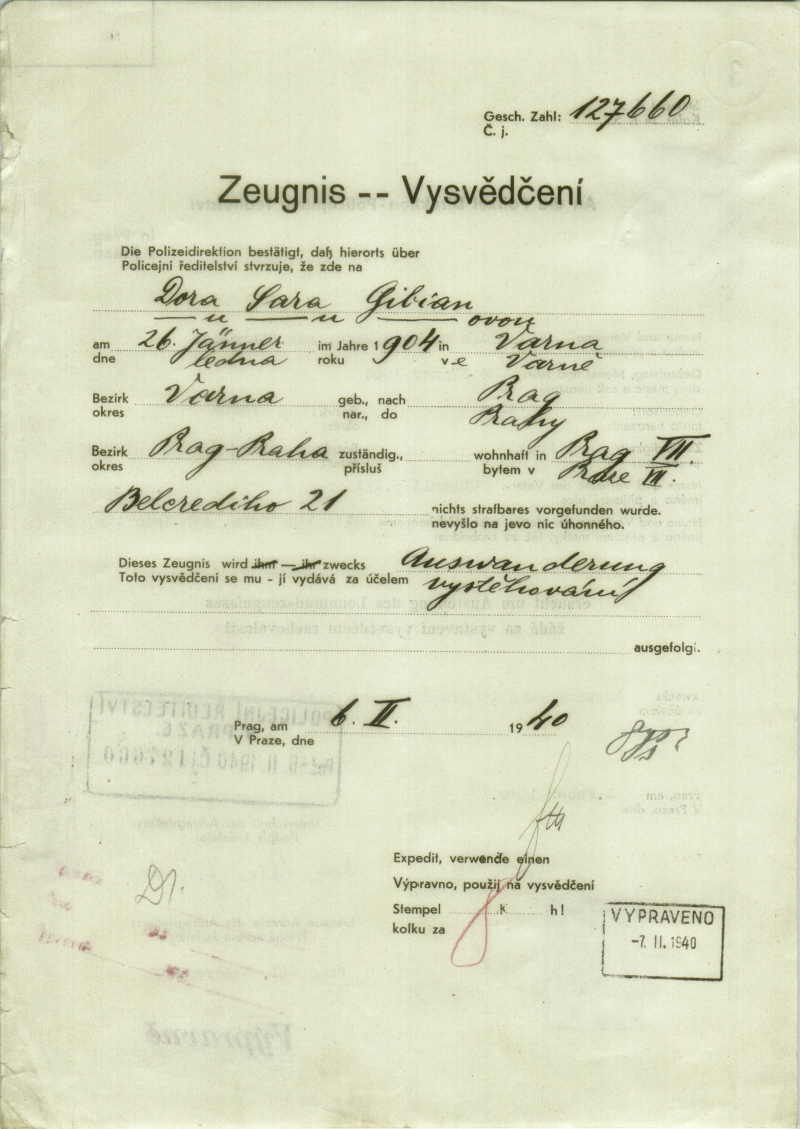 Gesch. Zahl: 127660
Č. j.
Zeugnis -- Vysvědčení
Die Polizeidirektion bestätigt, daß hierorts über
Policejní ředitelství stvrzuje, že zde na
Dora Sara Gibian
u u ovou
am 26. Jänner im Jahre 1904 in Varna
dne ledna roku v e Varně
Bezirk Varna geb., nach Prag
okres nar., do Prahy
Bezirk Prag-Praha zuständig., wohnhaft in Prag VII.
okres přísluš bytem v Praze VII.
Belcrediho 21 nichts strafbares vorgefunden wurde.
nevyšlo na jevo nic úhonného.
Dieses Zeugnis wird ihm — ihr zwecks Auswanderung
Toto vysvědčení se mu - jí vydává za účelem vystěhování
ausgefolgt.
Prag, am 6. II. 1940
V Praze, dne
Expedit, verwende einen
Výpravno, použij na vysvědčení
Stempel K h!
kolku za
VYPRAVENO
-7. II. 1940